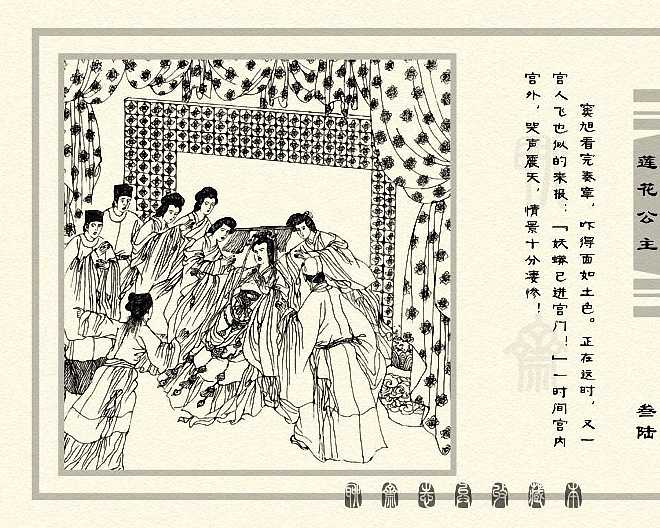 窦旭看完奏章，吓得面如土色。正在这时，又一
宫人飞也似的来报：“妖蟒已进宫门！”一时间宫内
宫外，哭声震天，情景十分凄惨！
莲花公主
叁陆
聊斋志异收藏本